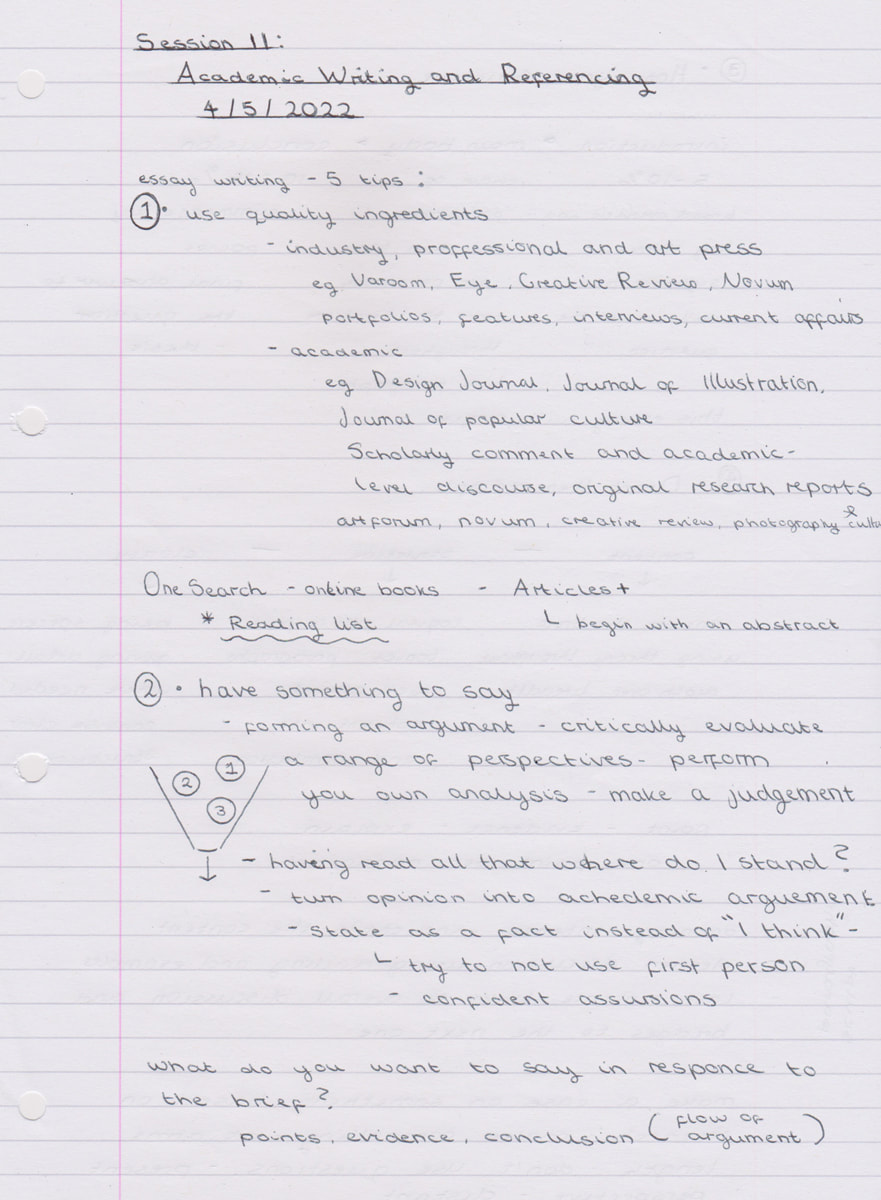 Session 11:
Academic Writing and Referencing
4/5/2022
essay writing - 5 tips :
① • use quality ingredients
- industry, proffessional and art press
eg Varoom, Eye, Creative Review, Novum
portfolios, features, interviews, current affairs
- academic
eg Design Journal, Journal of Illustration,
Journal of popular culture
Scholarly comment and academic-
level discourse, original research reports
artforum, novum, creative review, photography &
One Search - online books - Articles+
* Reading list └ begin with an abstract
② • have something to say
- forming an argument - critically evaluate
a range of perspectives - perform
you own analysis - make a judgement
② ① ③
↓ - having read all that where do I stand?
- turn opinion into achedemic arguement
- state as a fact instead of "I think" -
└ try to not use first person
- confident assursions
what do you want to say in responce to
the brief?
points, evidence, conclusion (flow of argument)